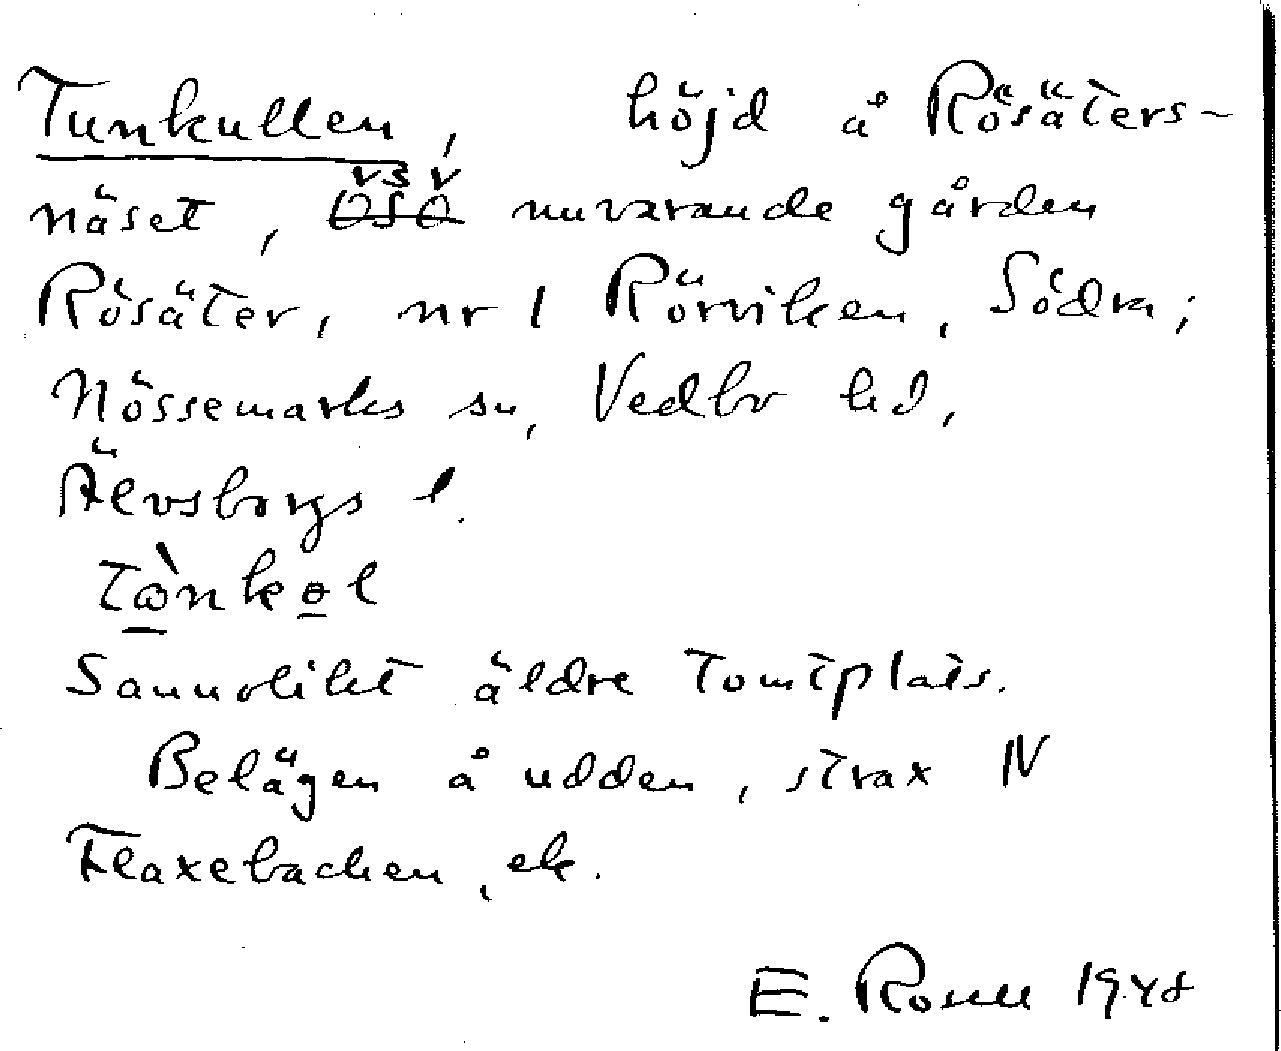 Tunkullen, höjd å Rösäters-
VSV
näset, OSO nuvarande gården
Rösäter, nr 1 Rörviken, Södra;
Nössemarks sn, Vedbo hd,
Älvsborgs l.
Sannolikt äldre tomtplats.
Belägen å udden, strax N
Flaxebacken, ek.
E. Rosell 1948